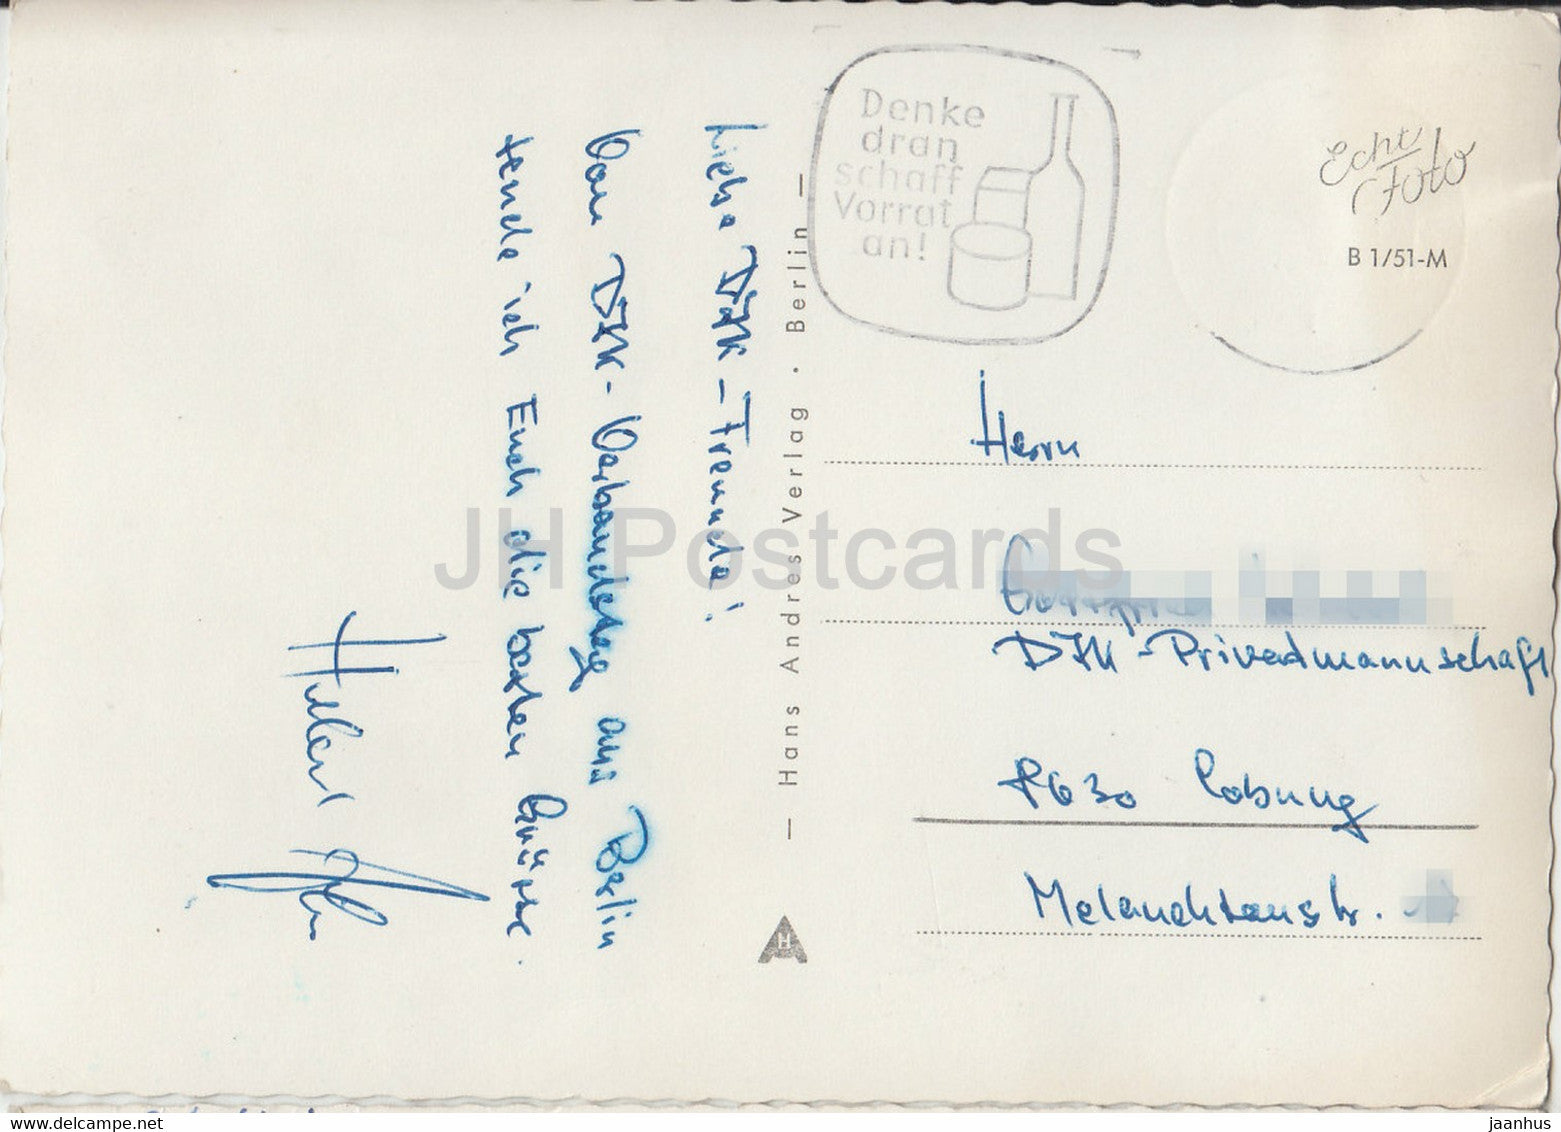 Liebe DJK-Freunde!
Vom DJK-Verbandstag aus Berlin
sende ich Euch die besten Grüsse.
Denke
dran
schaff
Vorrat
an!
Echt
Foto
B 1/51-M
— Hans Andres Verlag · Berlin —
H
Herrn
DJK-Privatmannschaft
8630 Coburg
Melanchtonstr.
JH Postcards
www.delcampe.net
jaanhus